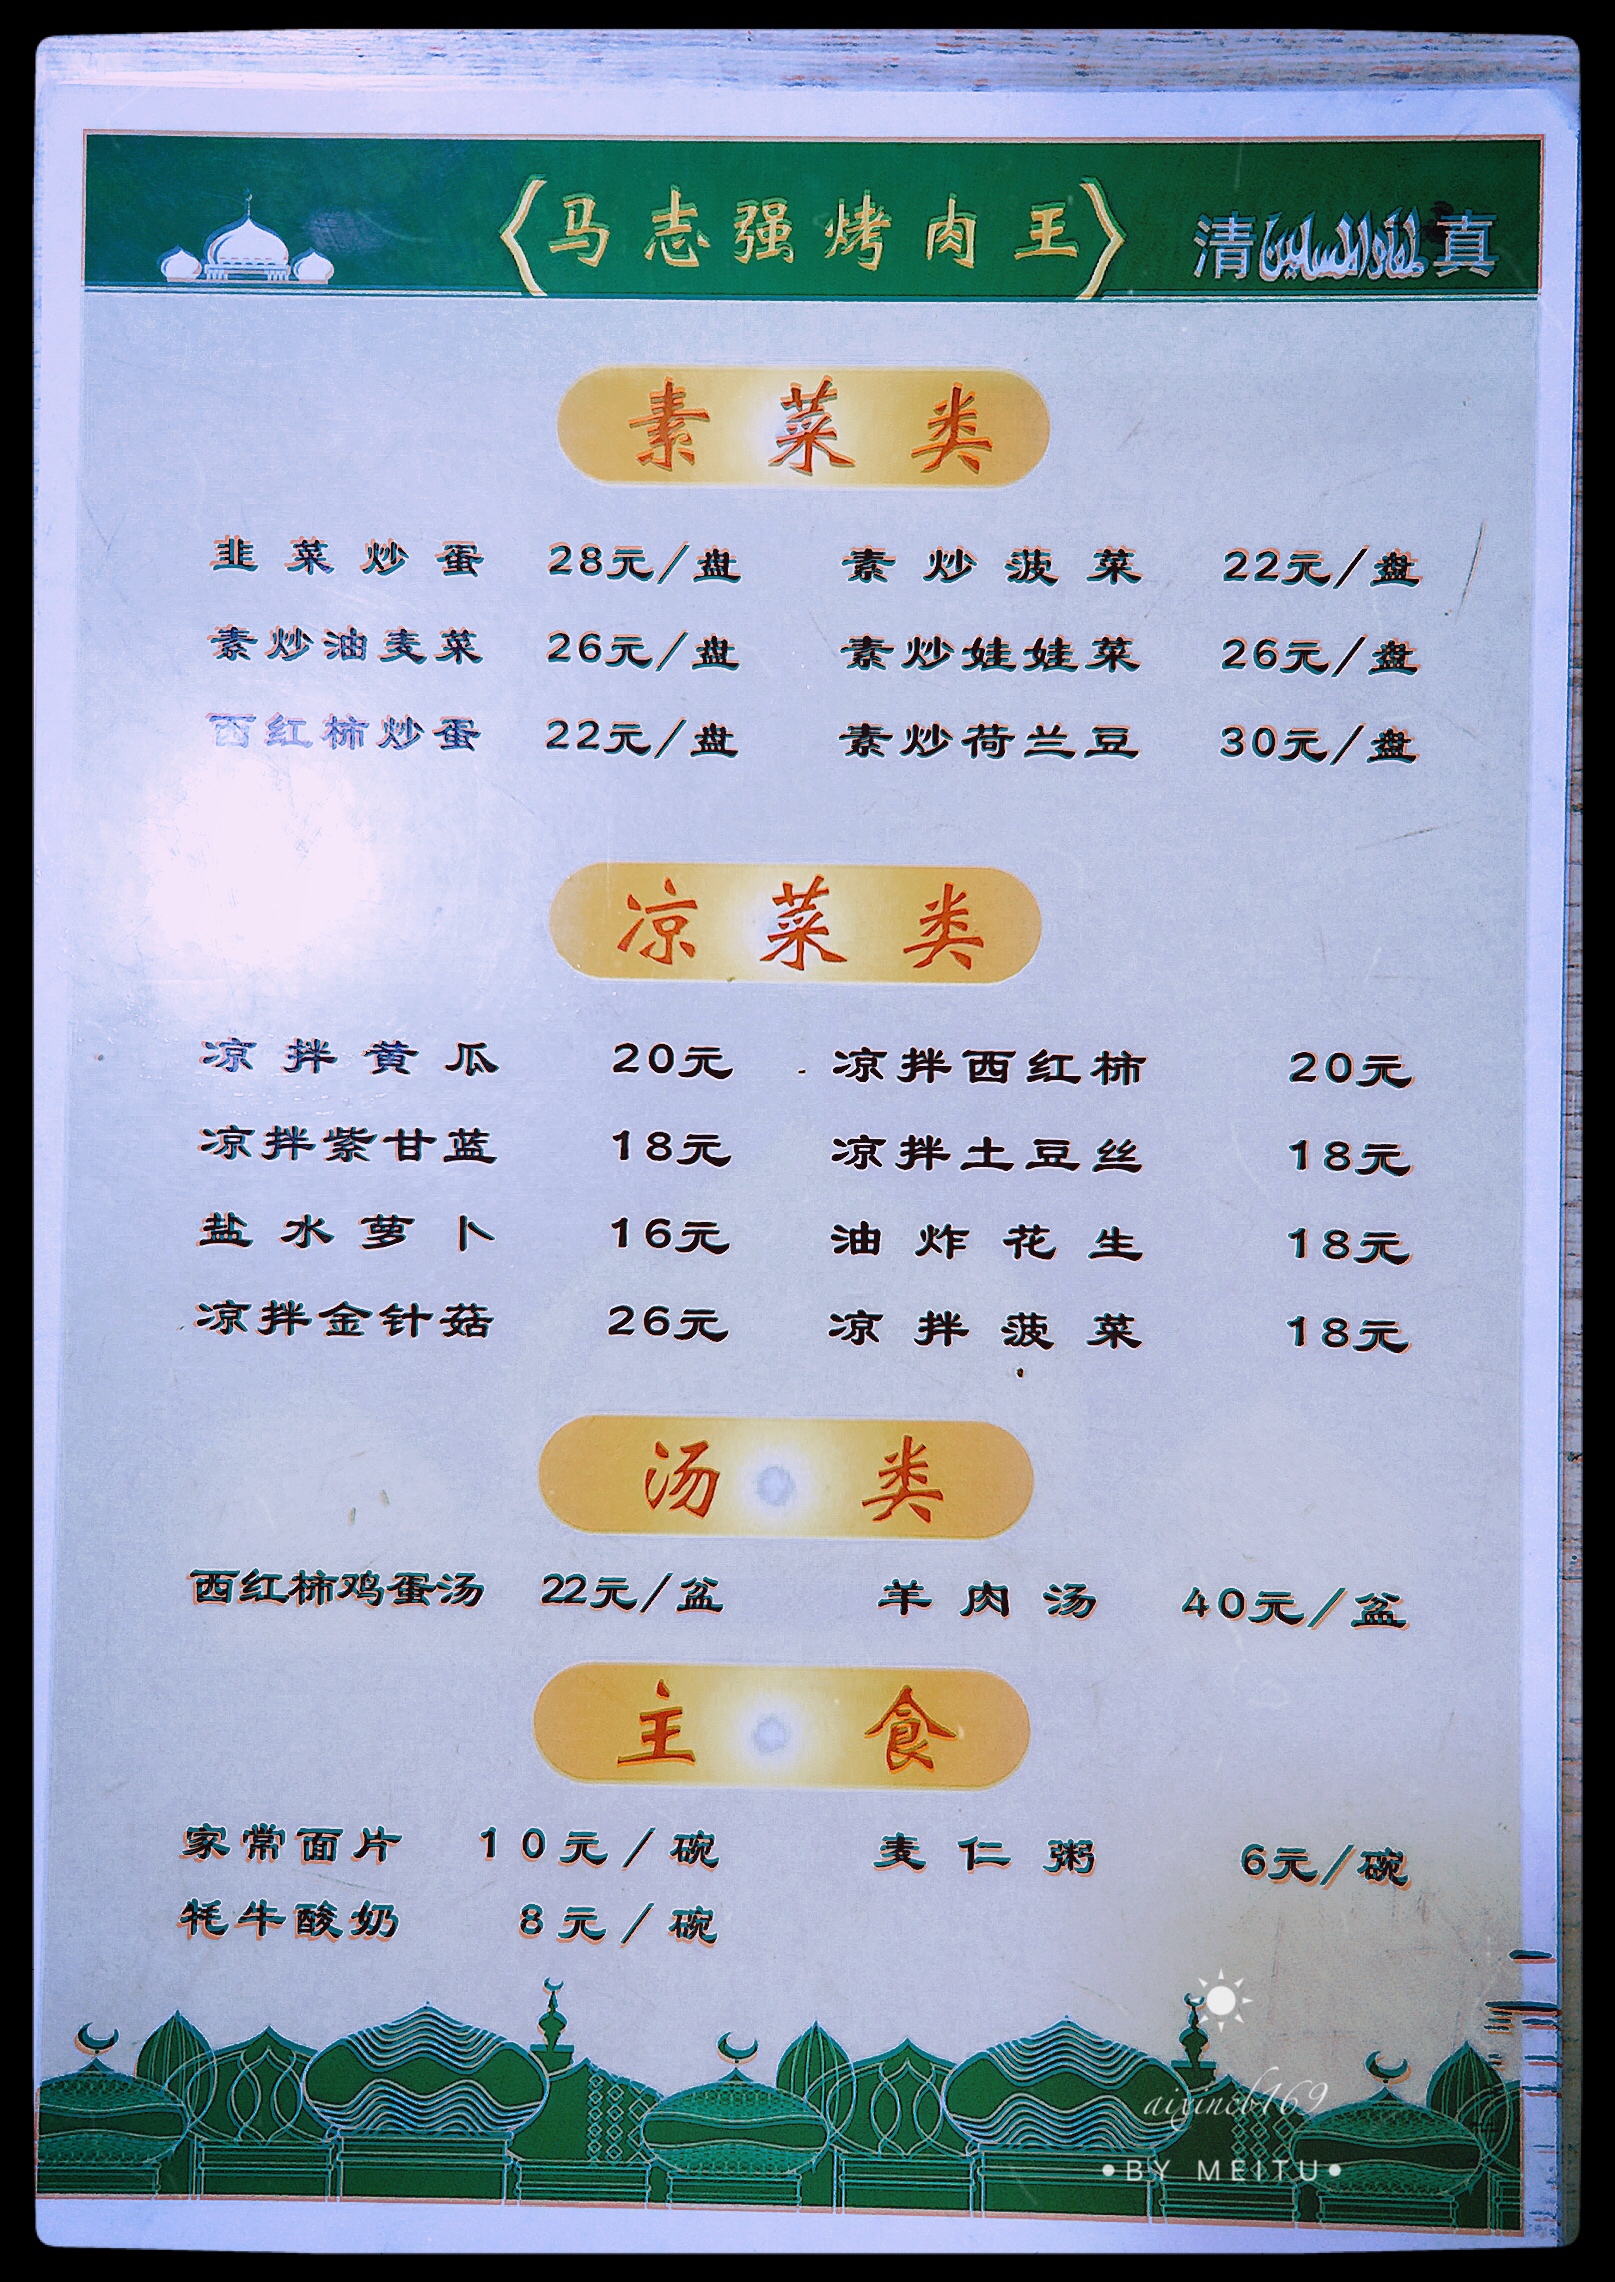 《马志强烤肉王》 清 真
素菜类
韭菜炒蛋 28元/盘 素炒菠菜 22元/盘
素炒油麦菜 26元/盘 素炒娃娃菜 26元/盘
西红柿炒蛋 22元/盘 素炒荷兰豆 30元/盘
凉菜类
凉拌黄瓜 20元 凉拌西红柿 20元
凉拌紫甘蓝 18元 凉拌土豆丝 18元
盐水萝卜 16元 油炸花生 18元
凉拌金针菇 26元 凉拌菠菜 18元
汤类
西红柿鸡蛋汤 22元/盆 羊肉汤 40元/盆
主食
家常面片 10元/碗 麦仁粥 6元/碗
牦牛酸奶 8元/碗
aixincb169
•BY MEITU•